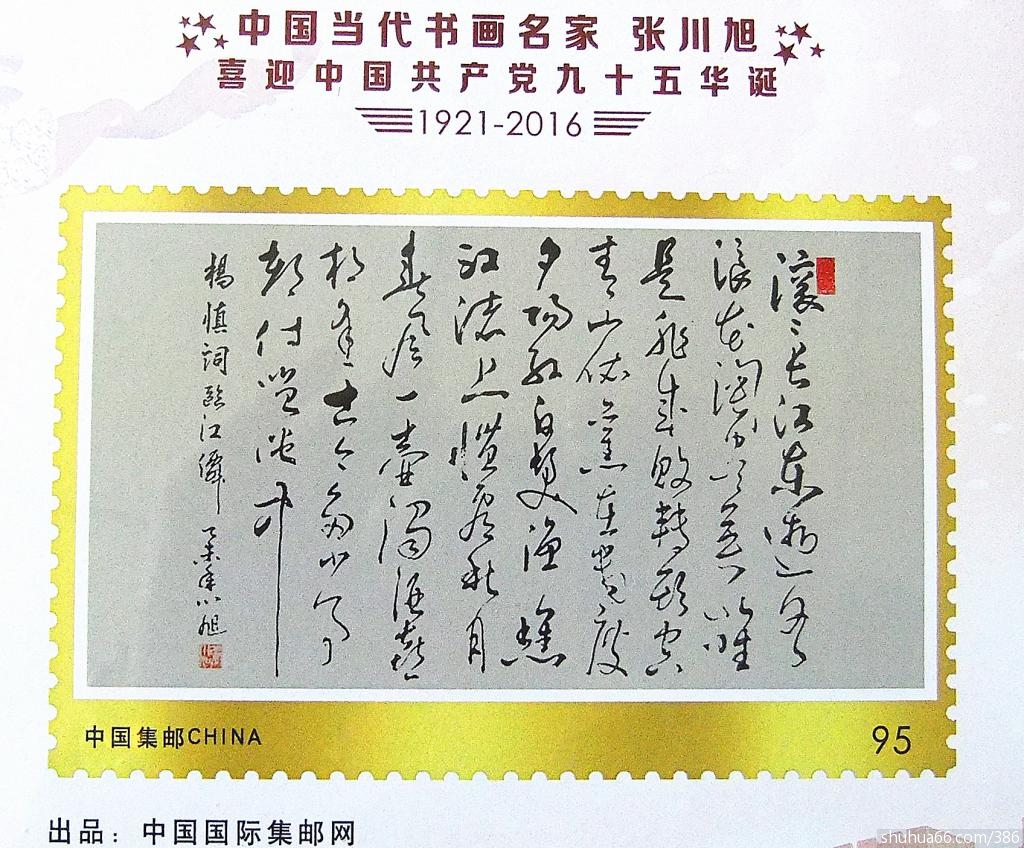 中国当代书画名家 张川旭
喜迎中国共产党九十五华诞
1921-2016
滚〻长江东逝水
浪花淘尽英雄
是非成敗轉頭空
青山依舊在幾度
夕陽紅白髮漁樵
江渚上慣看秋月
春風一壺濁酒喜
相逢古今多少事
都付笑談中
楊慎詞臨江僊 乙未年川旭
中国集邮CHINA
95
出品：中国国际集邮网
shuhua66.com/386